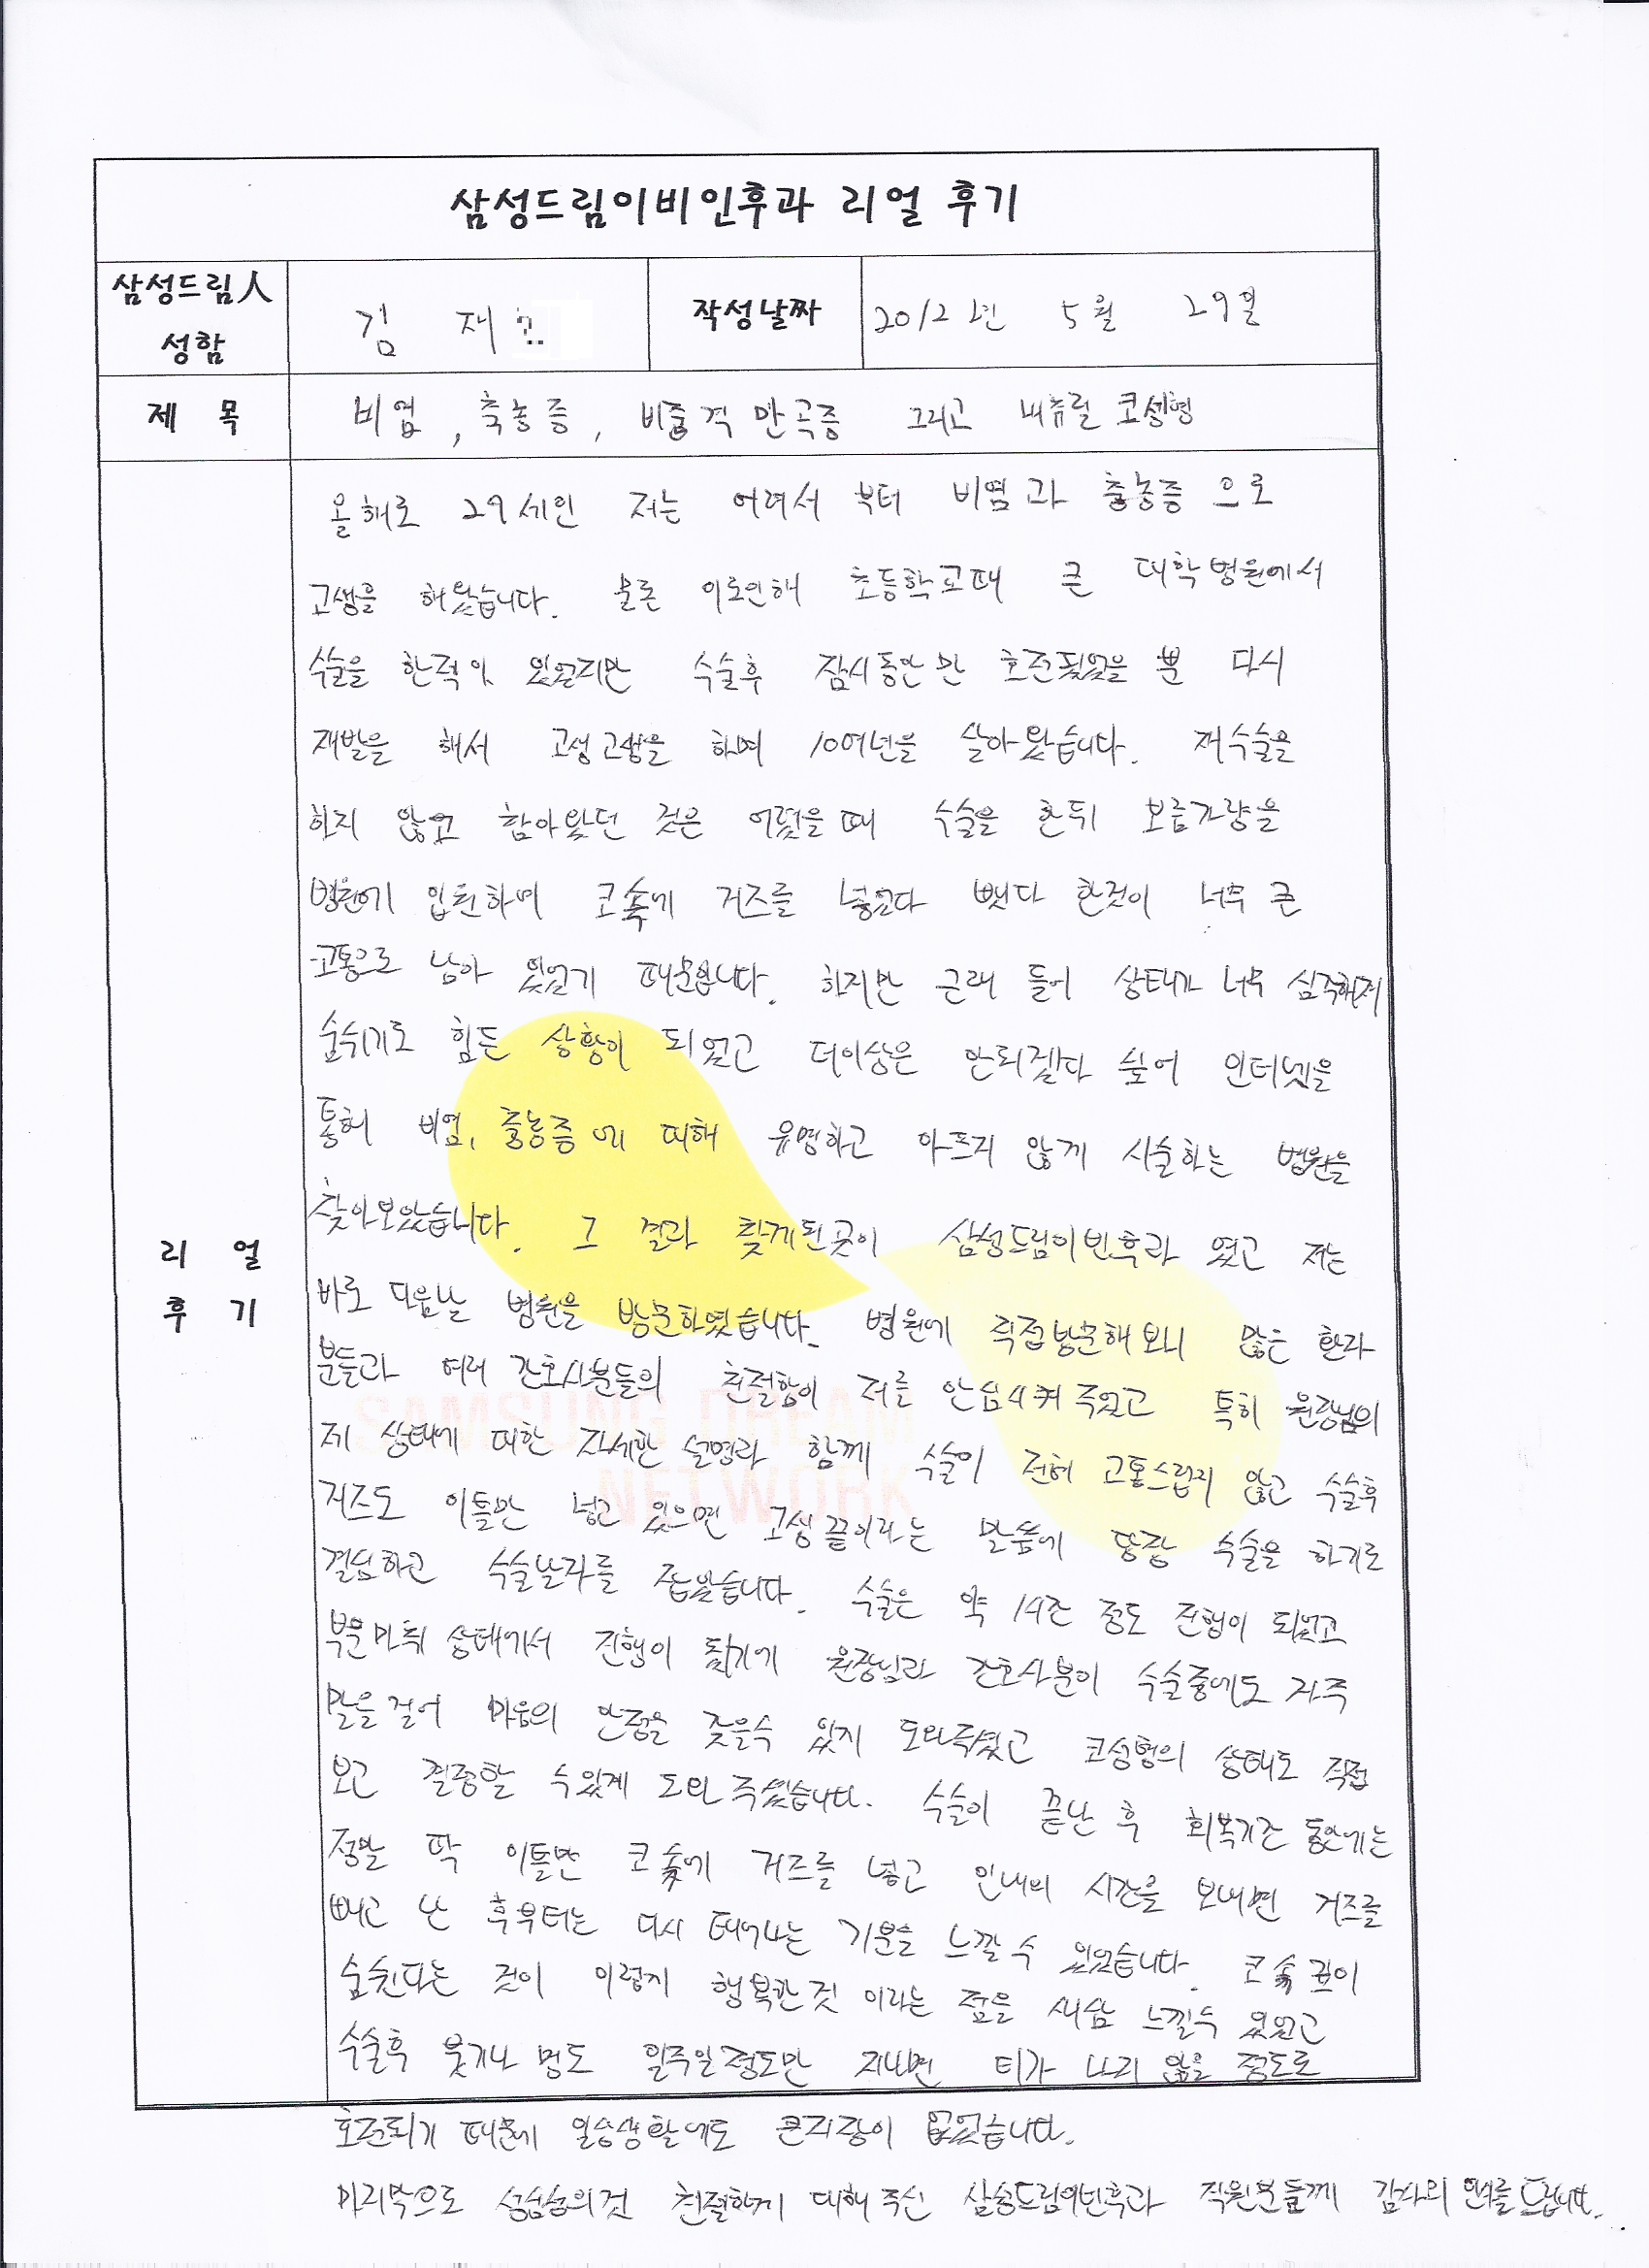 삼성드림이비인후과 리얼 후기
삼성드림人 성함
김 재
작성날짜
2012년 5월 29일
제 목
비염, 축농증, 비중격 만곡증 그리고 내츄럴 코성형
리 얼 후 기
올해로 29세인 저는 어려서 부터 비염과 축농증 으로
고생을 해왔습니다. 물론 이로인해 초등학교때 큰 대학병원에서
수술을 한적이 있었지만 수술후 잠시동안만 호전되었을 뿐 다시
재발을 해서 고생고생을 하며 10여년을 살아왔습니다. 재수술을
하지 않고 참아왔던 것은 어렸을때 수술을 한뒤 보름가량을
병원에 입원하며 코속에 거즈를 넣었다 뺐다 한것이 너무 큰
고통으로 남아 있었기 때문입니다. 하지만 근래 들어 상태가 너무 심각해져
숨쉬기도 힘든 상황이 되었고 더이상은 안되겠다 싶어 인터넷을
통해 비염, 축농증에 대해 유명하고 아프지 않게 시술하는 병원을
찾아보았습니다. 그 결과 찾게된곳이 삼성드림이빈후과 였고 저는
바로 다음날 병원을 방문하였습니다. 병원에 직접방문해보니 많은 환자
분들과 여러 간호사분들의 친절함이 저를 안심시켜 주었고 특히 원장님의
제 상태에 대한 자세한 설명과 함께 수술이 전혀 고통스럽지 않고 수술후
거즈도 이틀만 넣고 있으면 고생끝이라는 말씀에 당장 수술을 하기로
결심하고 수술날짜를 잡았습니다. 수술은 약 1시간 정도 진행이 되었고
부분마취 상태에서 진행이 됬기에 원장님과 간호사분이 수술중에도 자주
말을걸어 마음의 안정을 찾을수 있게 도와주셨고 코성형의 상태도 직접
보고 결정할 수있게 도와 주셨습니다. 수술이 끝난 후 회복기간 동안에는
정말 딱 이틀만 코속에 거즈를 넣고 인내의 시간을 보내면 거즈를
빼고 난 후부터는 다시 태어나는 기분을 느낄수 있었습니다. 코
숨쉰다는 것이 이렇게 행복한것 이라는 점을 새삼 느낄수 있었고
수술후 붓기나 멍도 일주일정도만 지나면 티가 나지 않을 정도로
호전되기 때문에 일상생활에도 큰지장이 없었습니다.
마지막으로 성심성의것 친절하게 대해 주신 삼성드림이빈후과 직원분들께 감사의 말씀을 드립니다.
SAMSUNG DREAM
NETWORK